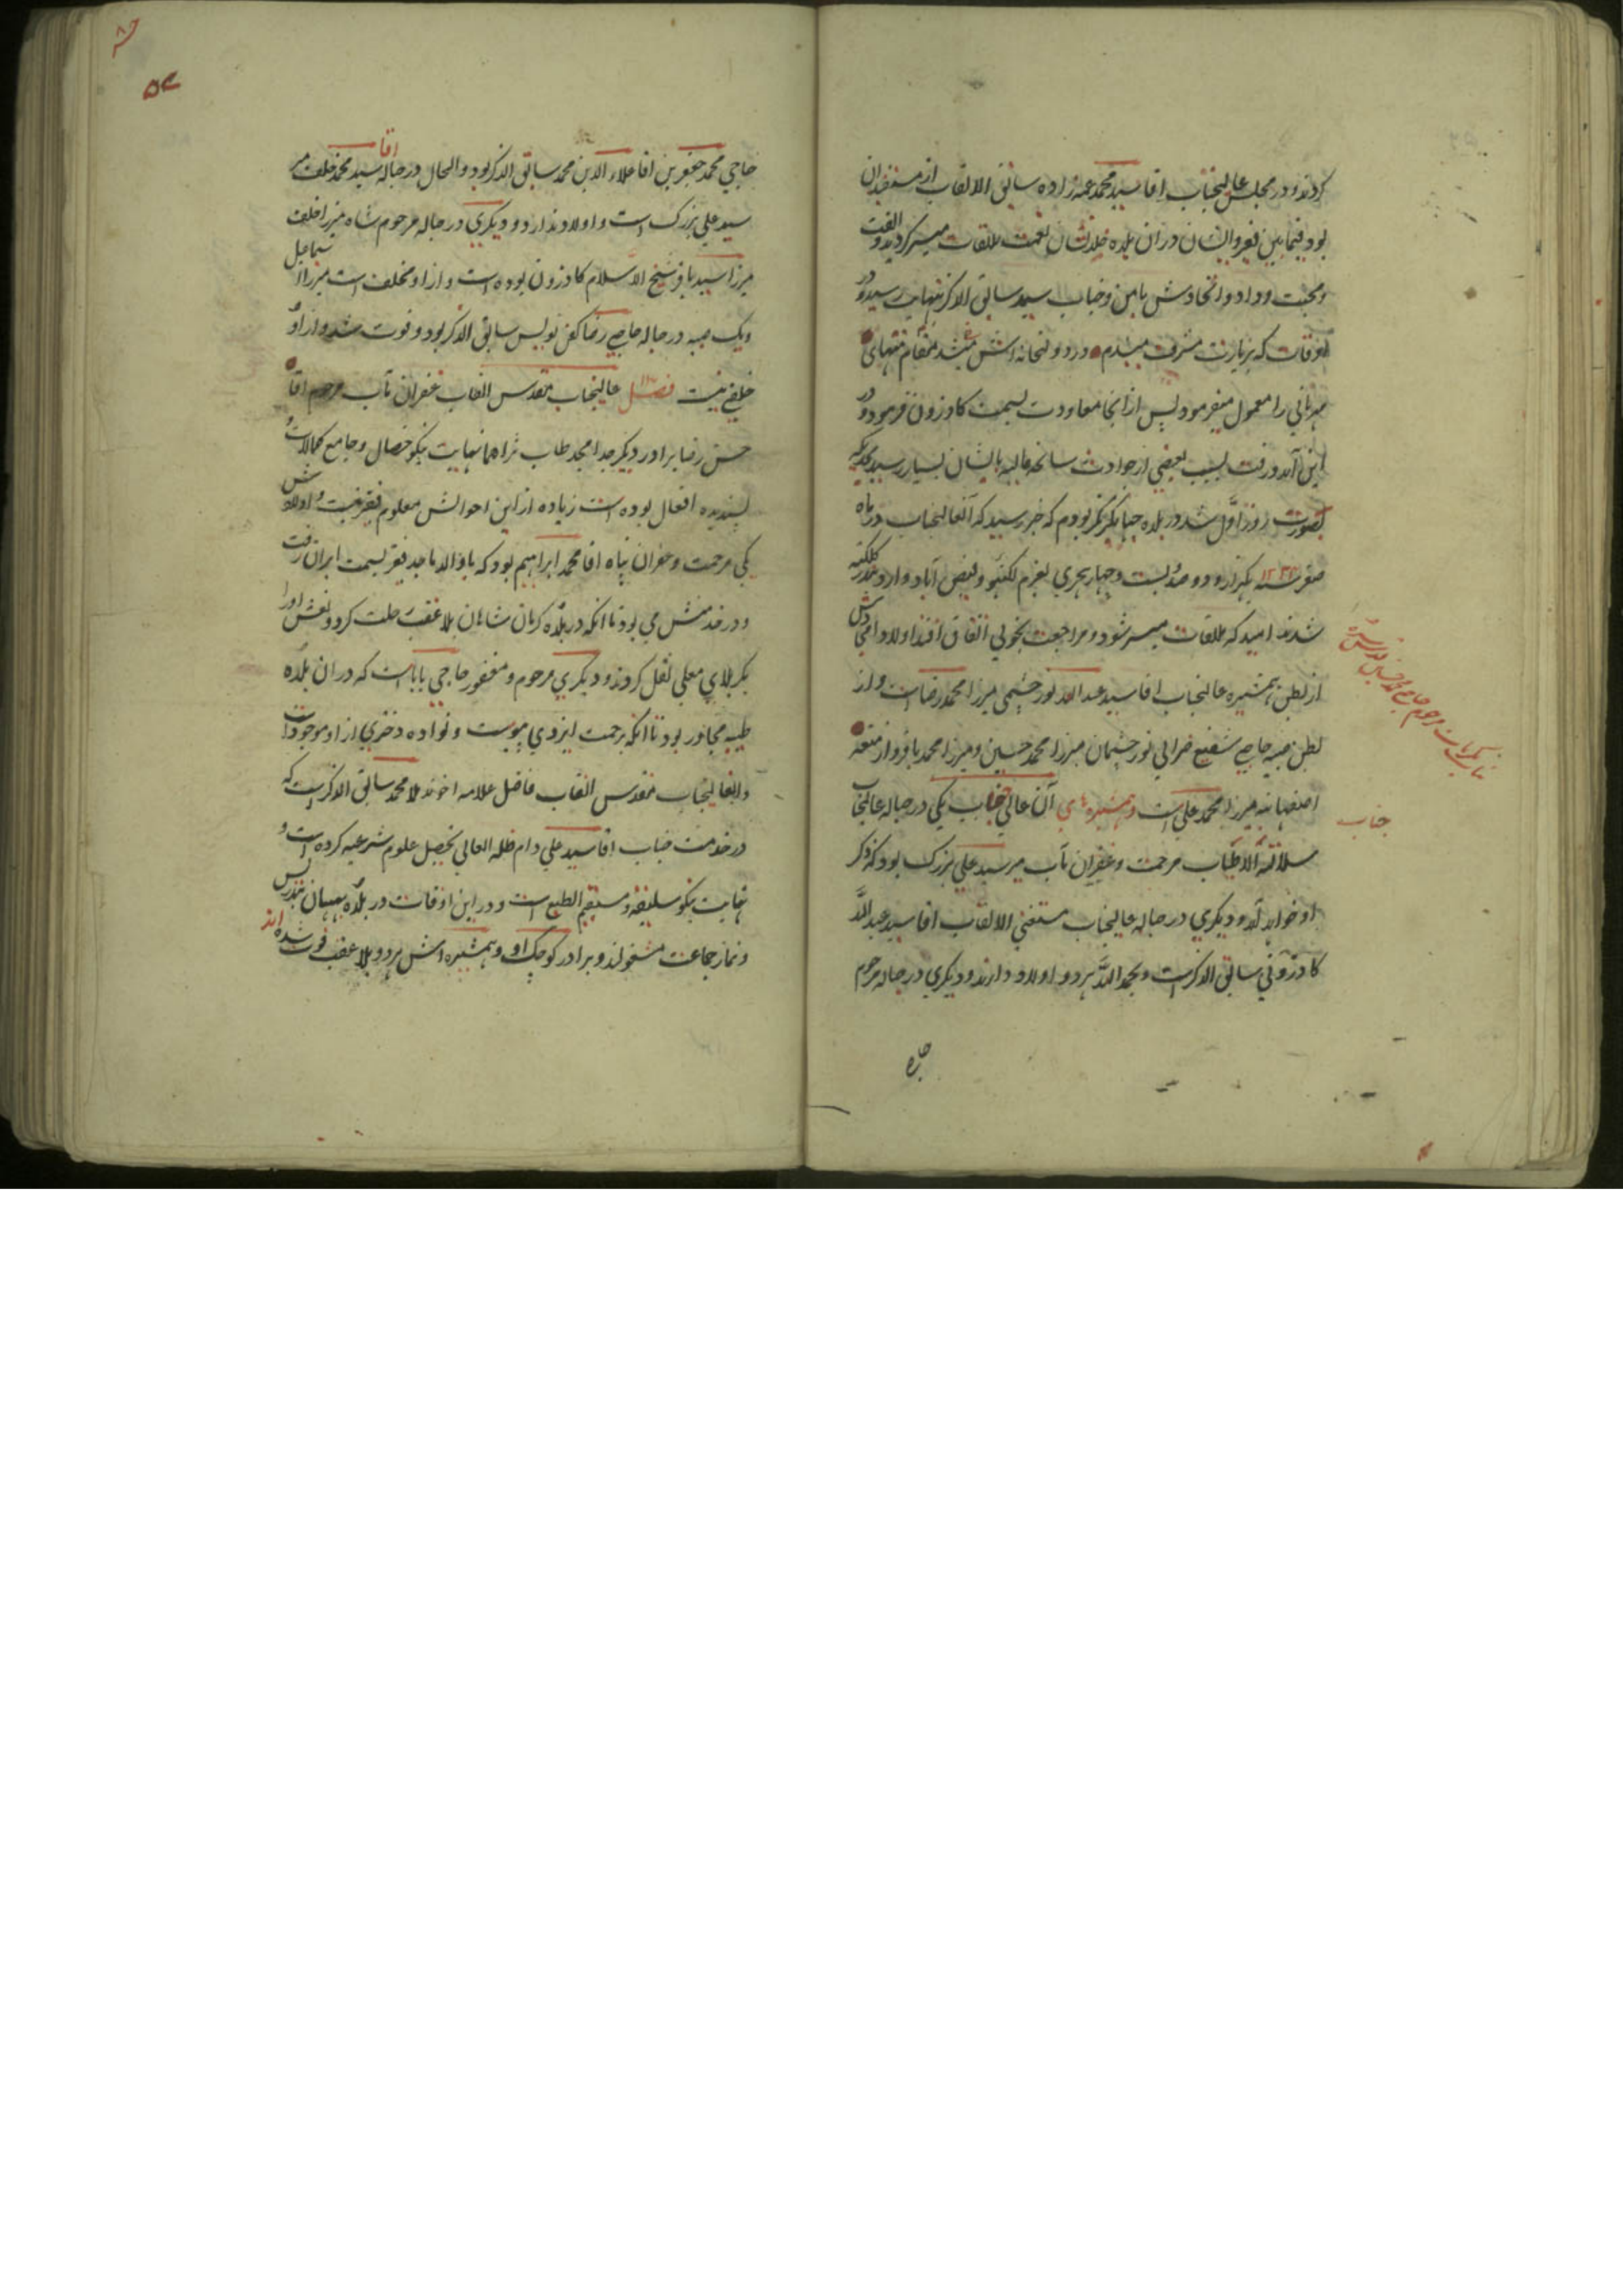 کردند و در مجلس عالیجناب اقا سید محمد عمه زاده سابق الالقاب از مستفیدان
بود فیمابین فقیر و ایشان دران بلده خلدنشان نعمت ملاقات میسر کردید و الفت
و محبت و وداد و اتحادش بامن و جناب سید سابق الذکر بنهایت رسید و در
اوقات که بزیارت مشرف میشدم در دولتخانه اش میشد مقام منتهای
مهربانی را معمول میفرمود پس از انجا معاودت بسمت کازرون فرمود و در
این آمد و رفت بسبب بعضی از حوادث سانحه مالیه بایشان بسیار رسید بحدیکه
بصورت روز اول شد در بلده جهانکیرنکر بودم که خبر رسید که آنعالیجناب در ماه
صفر سنه ۱۲۲۴ یکهزار و دو صد و بیست و چهار هجری بعزم لکنهو و فیض آباد وارد بندر کلکته
شدند امید که ملاقات میسر شود و مراجعت بخوبی اتفاق افتد اولاد امجادش
از بطن همشیره عالیجناب اقا سید عبد الله نور چشمی میرزا محمد رضا است و از
بطن صبیه حاجی شفیع خرابی نور چشمان میرزا محمد حسین و میرزا محمد باقر و از متعه
اصفهانیه میرزا محمد علی است و همشیره های آن عالی جناب یکی در حباله عالیجناب
جناب
سلالة الاطیاب مرحمت و غفران مآب میر سید علی بزرک بود که ذکر
او خواهد آمد و دیکری در حباله عالیجناب مستغنی الالقاب اقا سید عبد الله
کازرونی سابق الذکر است و بحمد الله هر دو اولاد دارند و دیکری در حباله مرحوم
حاجی محمد جعفر بن اقا علاء الدین محمد سابق الذکر بود و الحال در حباله اقا سید محمد خلف میر
سید علی بزرک است و اولاد ندارد و دیکری در حباله مرحوم شاه میرزا خلف
میرزا سید باقر شیخ الاسلام کازرون بوده است و از او مخلف است میرزا اسماعیل
و یک صبیه در حباله حاجی رضا کفن نویس سابق الذکر بود و فوت شد و از او
خلفی نیست فصل عالیجناب مقدس القاب غفران مآب مرحوم اقا
حسن رضا برادر دیکر جد امجد طاب ثراهما نهایت نیکو خصال و جامع کمالات و
پسندیده افعال بوده است زیاده از این احوالش معلوم فقیر نیست و اولادش
یکی مرحمت و غفران پناه اقا محمد ابراهیم بود که با والد ماجد فقیر بسمت ایران رفت
و در خدمتش می بود تا انکه در بلده کرمان شاهان بلا عقب رحلت کرد و نعش او را
بکربلای معلی نقل کردند و دیکری مرحوم و مغفور حاجی بابا است که در ان بلده
طیبه مجاور بود تا انکه برحمت ایزدی پیوست و نواده دختری از او موجود است
و انعالیجناب مقدس القاب فاضل علامه اخوند ملا محمد سابق الذکر است که
در خدمت جناب اقا سید علی دام ظله العالی تحصیل علوم شرعیه کرده است و
نهایت نیکو سلیقه و مستقیم الطبع است و در این اوقات در بلده بهبهان بتدریس
و نماز جماعت مشغولند و برادر کوچک او و همشیره اش هر دو بلا عقب فوت شده اند